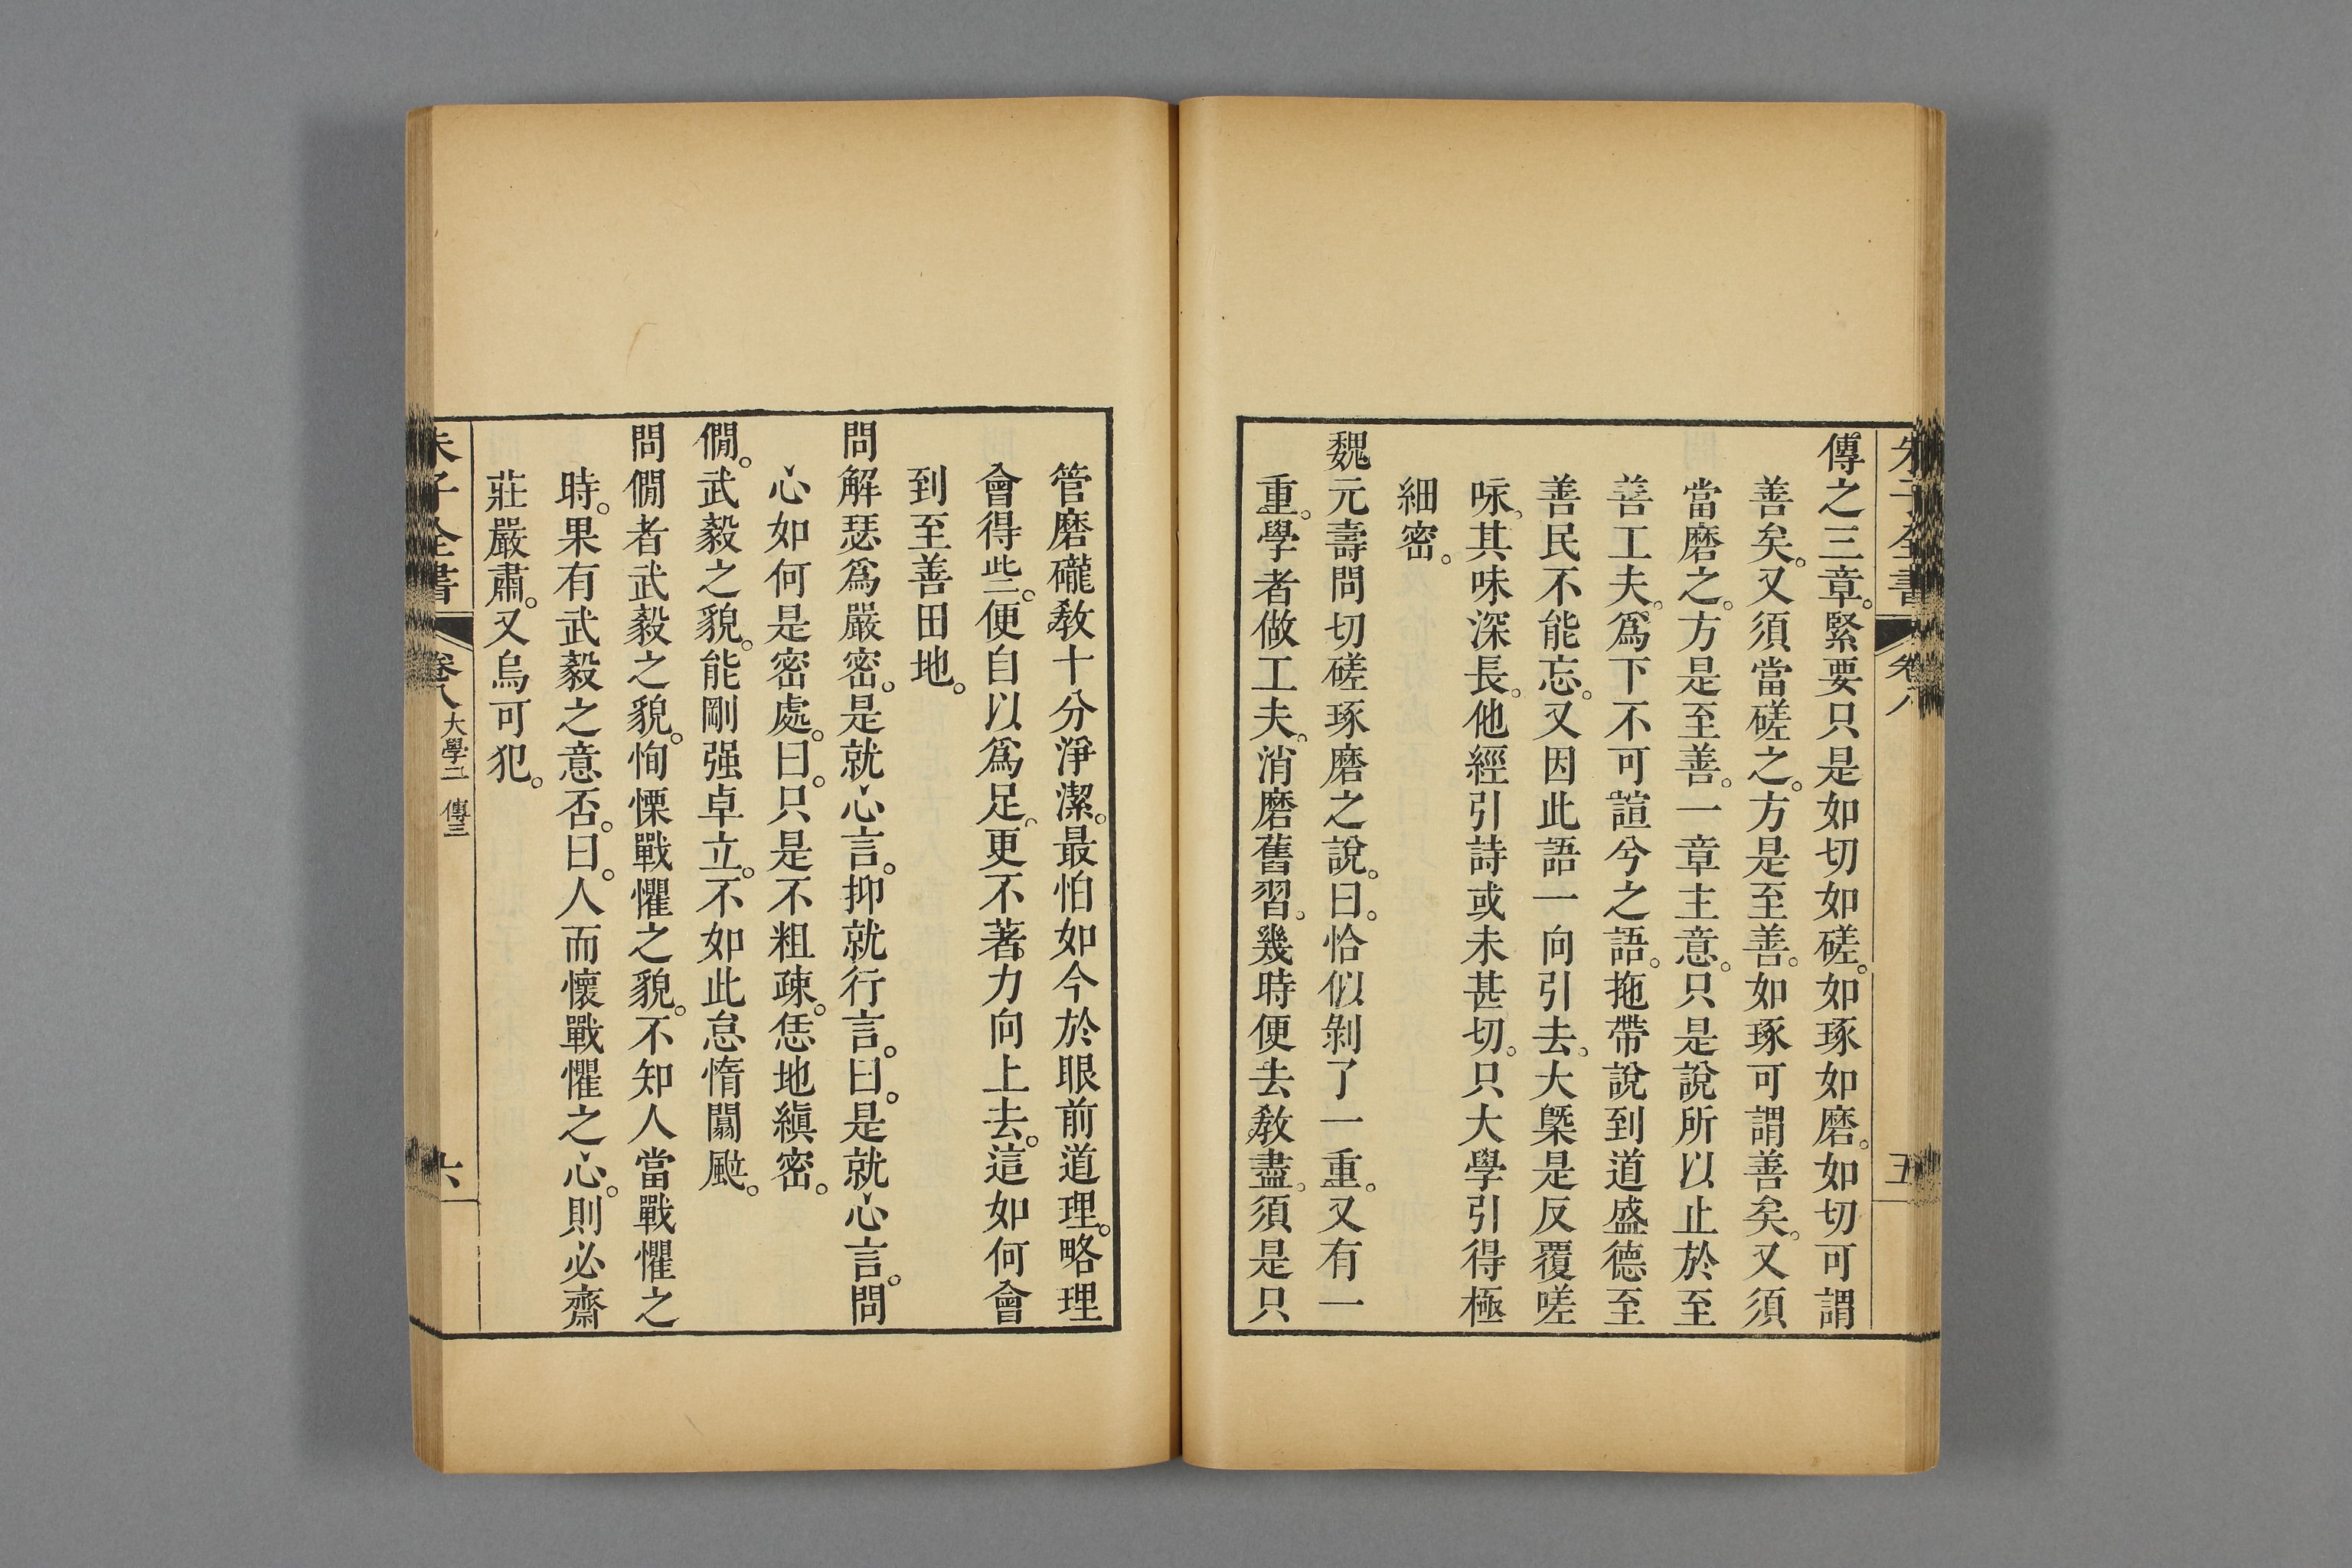 朱子全書 卷八 五
傳之三章。緊要只是如切如磋。如琢如磨。如切可謂
善矣。又須當磋之。方是至善。如琢可謂善矣。又須
當磨之。方是至善。一章主意。只是說所以止於至
善工夫。爲下不可諠兮之語。拖帶說到道盛德至
善民不能忘。又因此語一向引去。大槩是反覆嗟
咏。其味深長。他經引詩或未甚切。只大學引得極
細密。
魏元壽問切磋琢磨之說。曰。恰似剝了一重。又有一
重。學者做工夫。消磨舊習。幾時便去敎盡。須是只
管磨礲敎十分淨潔。最怕如今於眼前道理。略理
會得些。便自以爲足。更不著力向上去。這如何會
到至善田地。
問解瑟爲嚴密。是就心言。抑就行言。曰。是就心言。問
心如何是密處。曰。只是不粗疎。恁地縝密。
僩。武毅之貌。能剛强卓立。不如此怠惰闒颯。
問僩者武毅之貌。恂慄戰懼之貌。不知人當戰懼之
時。果有武毅之意否。曰。人而懷戰懼之心。則必齋
莊嚴肅。又烏可犯。
朱子全書 卷八 大學二 傳三 六